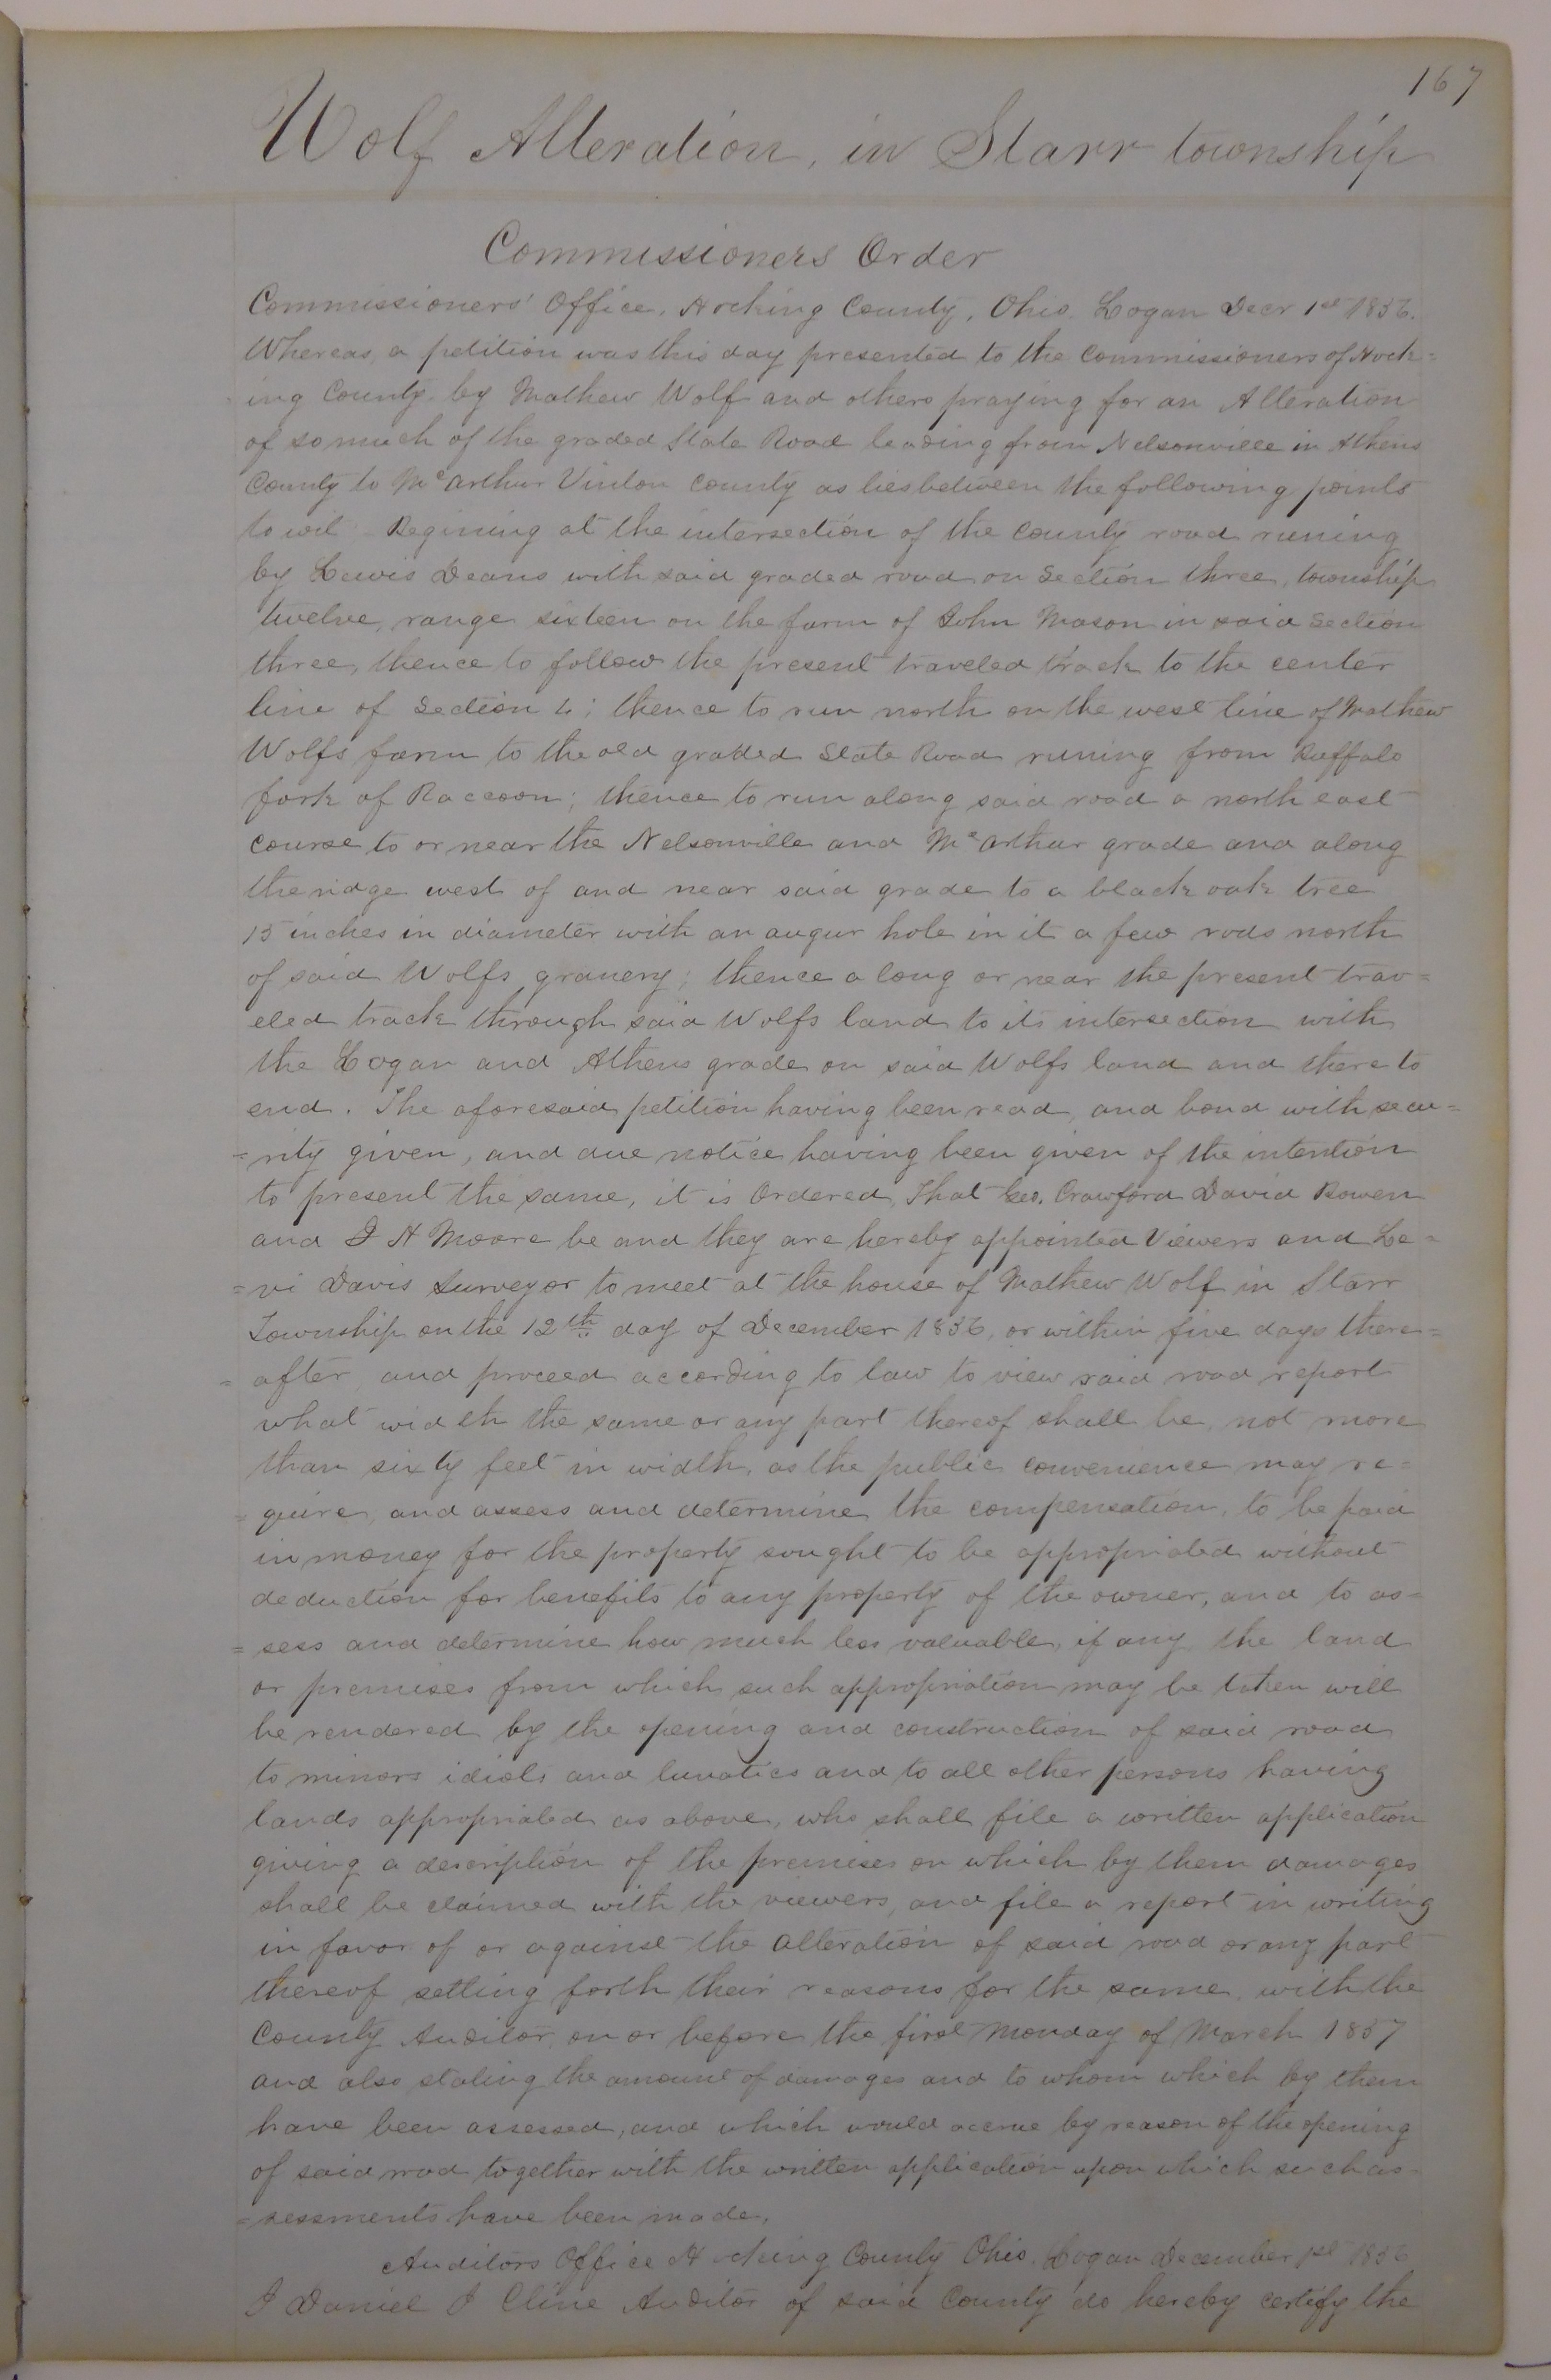 167
Wolf Alteration, in Starr township
Commissioners Order
Commissioners' Office, Hocking County, Ohio. Logan Decr 1st 1856.
Whereas, a petition was this day presented to the Commissioners of Hock=
ing County by Mathew Wolf and others praying for an Alteration
of so much of the graded State Road leading from Nelsonville in Athens
County to McArthur Vinton County as lies between the following points
to wit Begining at the intersection of the County road runing
by Lewis Deans with said graded road on Section three, township
twelve, range sixteen on the farm of John Mason in said Section
three, thence to follow the present traveled track to the center
line of Section 4; thence to run north on the west line of Mathew
Wolfs farm to the old graded State Road runing from Buffalo
fork of Raccoon; thence to run along said road a north east
course to or near the Nelsonville and McArthur grade and along
the ridge west of and near said grade to a black oak tree
15 inches in diameter with an augur hole in it a few rods north
of said Wolfs granery; thence along or near the present trav=
eled track through said Wolfs land to its intersection with
the Logan and Athens grade on said Wolfs land and there to
end. The aforesaid petition having been read, and bond with secu=
=rity given, and due notice having been given of the intention
to present the same, it is Ordered, That Geo. Crawford David Bowen
and J H Moore be and they are hereby appointed Viewers and Le=
=vi Davis Surveyor to meet at the house of Mathew Wolf in Starr
Township on the 12th day of December 1856, or within five days there=
=after, and proceed according to law to view said road report
what width the same or any part thereof shall be, not more
than sixty feet in width, as the public convenience may re=
=quire, and assess and determine the compensation, to be paid
in money for the property sought to be appropriated without
deduction for benefits to any property of the owner, and to as=
=sess and determine how much less valuable, if any, the land
or premises from which such appropriation may be taken will
be rendered by the opening and construction of said road
to minors idiots and lunatics and to all other persons having
lands appropriated as above, who shall file a written application
giving a description of the premises on which by them damages
shall be claimed with the viewers, and file a report in writing
in favor of or against the alteration of said road or any part
thereof setting forth their reasons for the same, with the
County Auditor, on or before the first Monday of March 1857
and also stating the amount of damages and to whom which by them
have been assessed, and which would accrue by reason of the opening
of said road together with the written application upon which such as=
=sessments have been made.
Auditors Office Hocking County Ohio. Logan December 1st 1856
I Daniel J Cline Auditor of said County do hereby certify the